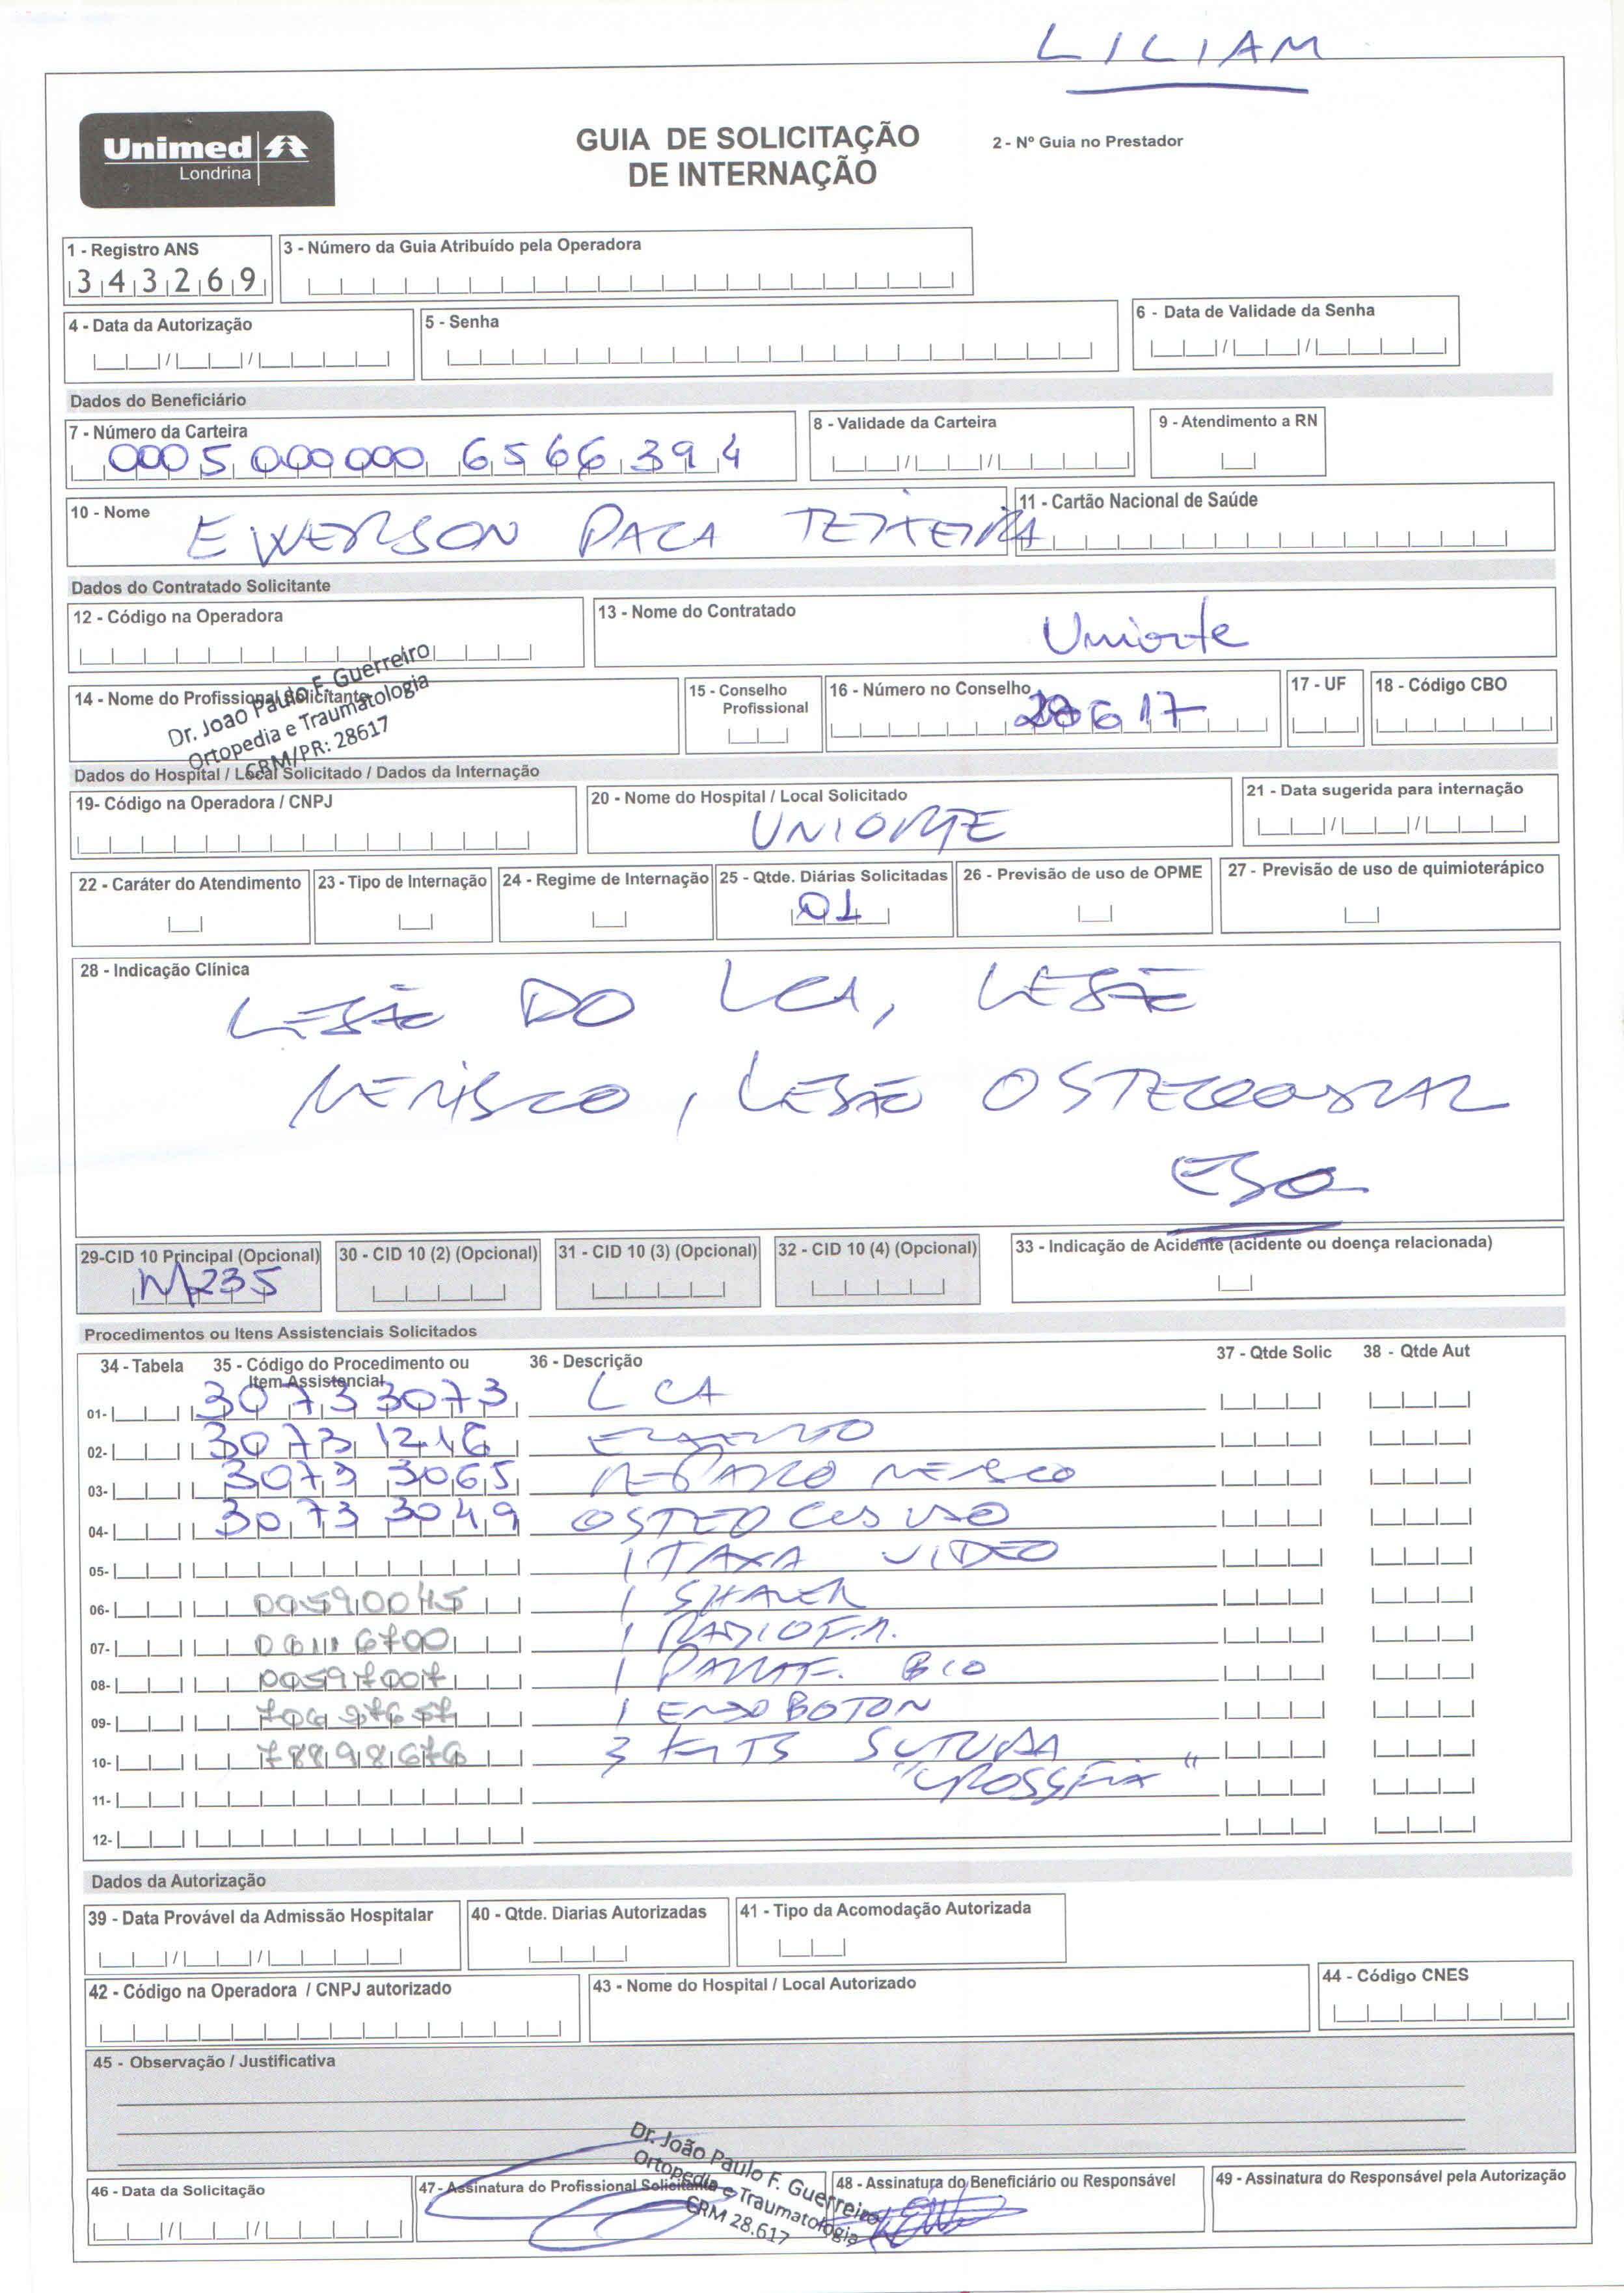 LILIAM
Unimed
Londrina
GUIA DE SOLICITAÇÃO
DE INTERNAÇÃO
2 - Nº Guia no Prestador
1 - Registro ANS
343269
3 - Número da Guia Atribuído pela Operadora
4 - Data da Autorização
5 - Senha
6 - Data de Validade da Senha
Dados do Beneficiário
7 - Número da Carteira
0005 000000 6566394
8 - Validade da Carteira
9 - Atendimento a RN
10 - Nome
EWERSON PACA TEIXEIRA
11 - Cartão Nacional de Saúde
Dados do Contratado Solicitante
12 - Código na Operadora
13 - Nome do Contratado
Uniorte
14 - Nome do Profissional Solicitante
Dr. Joao Paulo F. Guerreiro
Ortopedia e Traumatologia
CRM/PR: 28617
15 - Conselho Profissional
16 - Número no Conselho
28617
17 - UF
18 - Código CBO
Dados do Hospital / Local Solicitado / Dados da Internação
19- Código na Operadora / CNPJ
20 - Nome do Hospital / Local Solicitado
UNIORTE
21 - Data sugerida para internação
22 - Caráter do Atendimento
23 - Tipo de Internação
24 - Regime de Internação
25 - Qtde. Diárias Solicitadas
01
26 - Previsão de uso de OPME
27 - Previsão de uso de quimioterápico
28 - Indicação Clínica
LESÃO DO LCA, LESÃO
MENISCO, LESÃO OSTEOCONDRAL
ESQ
29-CID 10 Principal (Opcional)
M235
30 - CID 10 (2) (Opcional)
31 - CID 10 (3) (Opcional)
32 - CID 10 (4) (Opcional)
33 - Indicação de Acidente (acidente ou doença relacionada)
Procedimentos ou Itens Assistenciais Solicitados
34 - Tabela 35 - Código do Procedimento ou Item Assistencial 36 - Descrição 37 - Qtde Solic 38 - Qtde Aut
01- 30733073 LCA
02- 30731216 ENXERTO
03- 30733065 REPARO MENISCO
04- 30733049 OSTEO
05- 1 TAXA VIDEO
06- 00590045 1 SHAVER
07- 06116700 1 RADIOF.
08- 00597007 1 PARAF. BIO
09- 70697657 1 ENDOBOTON
10- 78898676 3 KITS SUTURA
11- "CROSSFIX"
12-
Dados da Autorização
39 - Data Provável da Admissão Hospitalar
40 - Qtde. Diarias Autorizadas
41 - Tipo da Acomodação Autorizada
42 - Código na Operadora / CNPJ autorizado
43 - Nome do Hospital / Local Autorizado
44 - Código CNES
45 - Observação / Justificativa
46 - Data da Solicitação
47- Assinatura do Profissional Solicitante
Dr. João Paulo F. Guerreiro
Ortopedia e Traumatologia
CRM 28.617
48 - Assinatura do Beneficiário ou Responsável
49 - Assinatura do Responsável pela Autorização